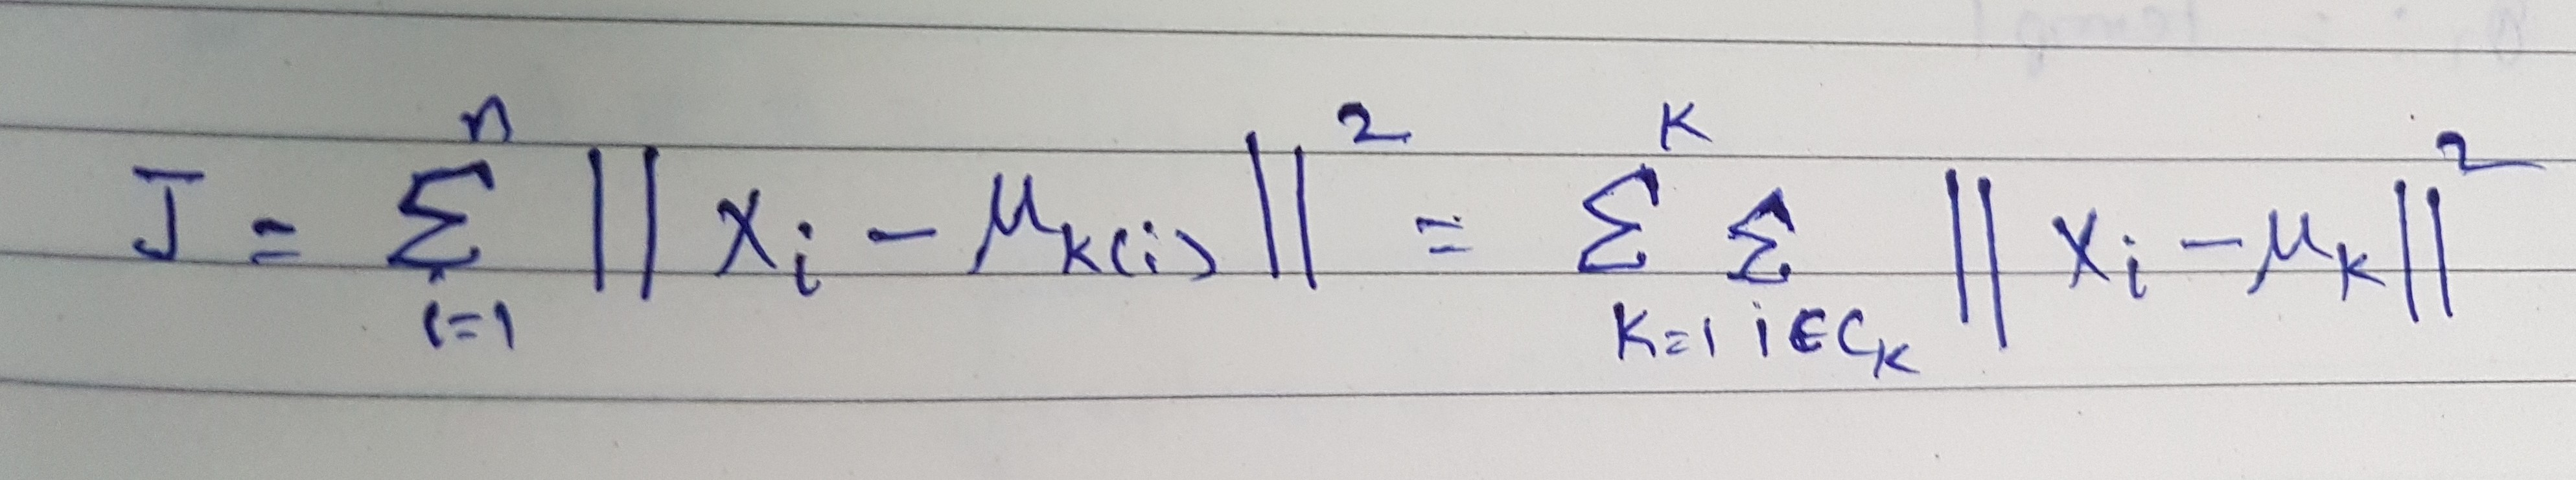 J = \sum_{i=1}^{n} || x_i - \mu_{k(i)} ||^2 = \sum_{k=1}^{K} \sum_{i \in C_k} || x_i - \mu_k ||^2